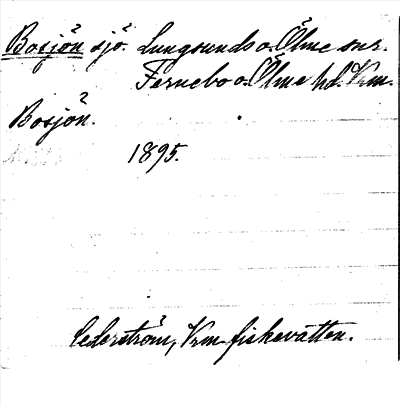 Bosjön sjö. Lungsunds o. Ölme snr.
Fernebo o. Ölme hd. Vrm.
Bosjön.
1895.
Cederström, Vrm fiskevatten.